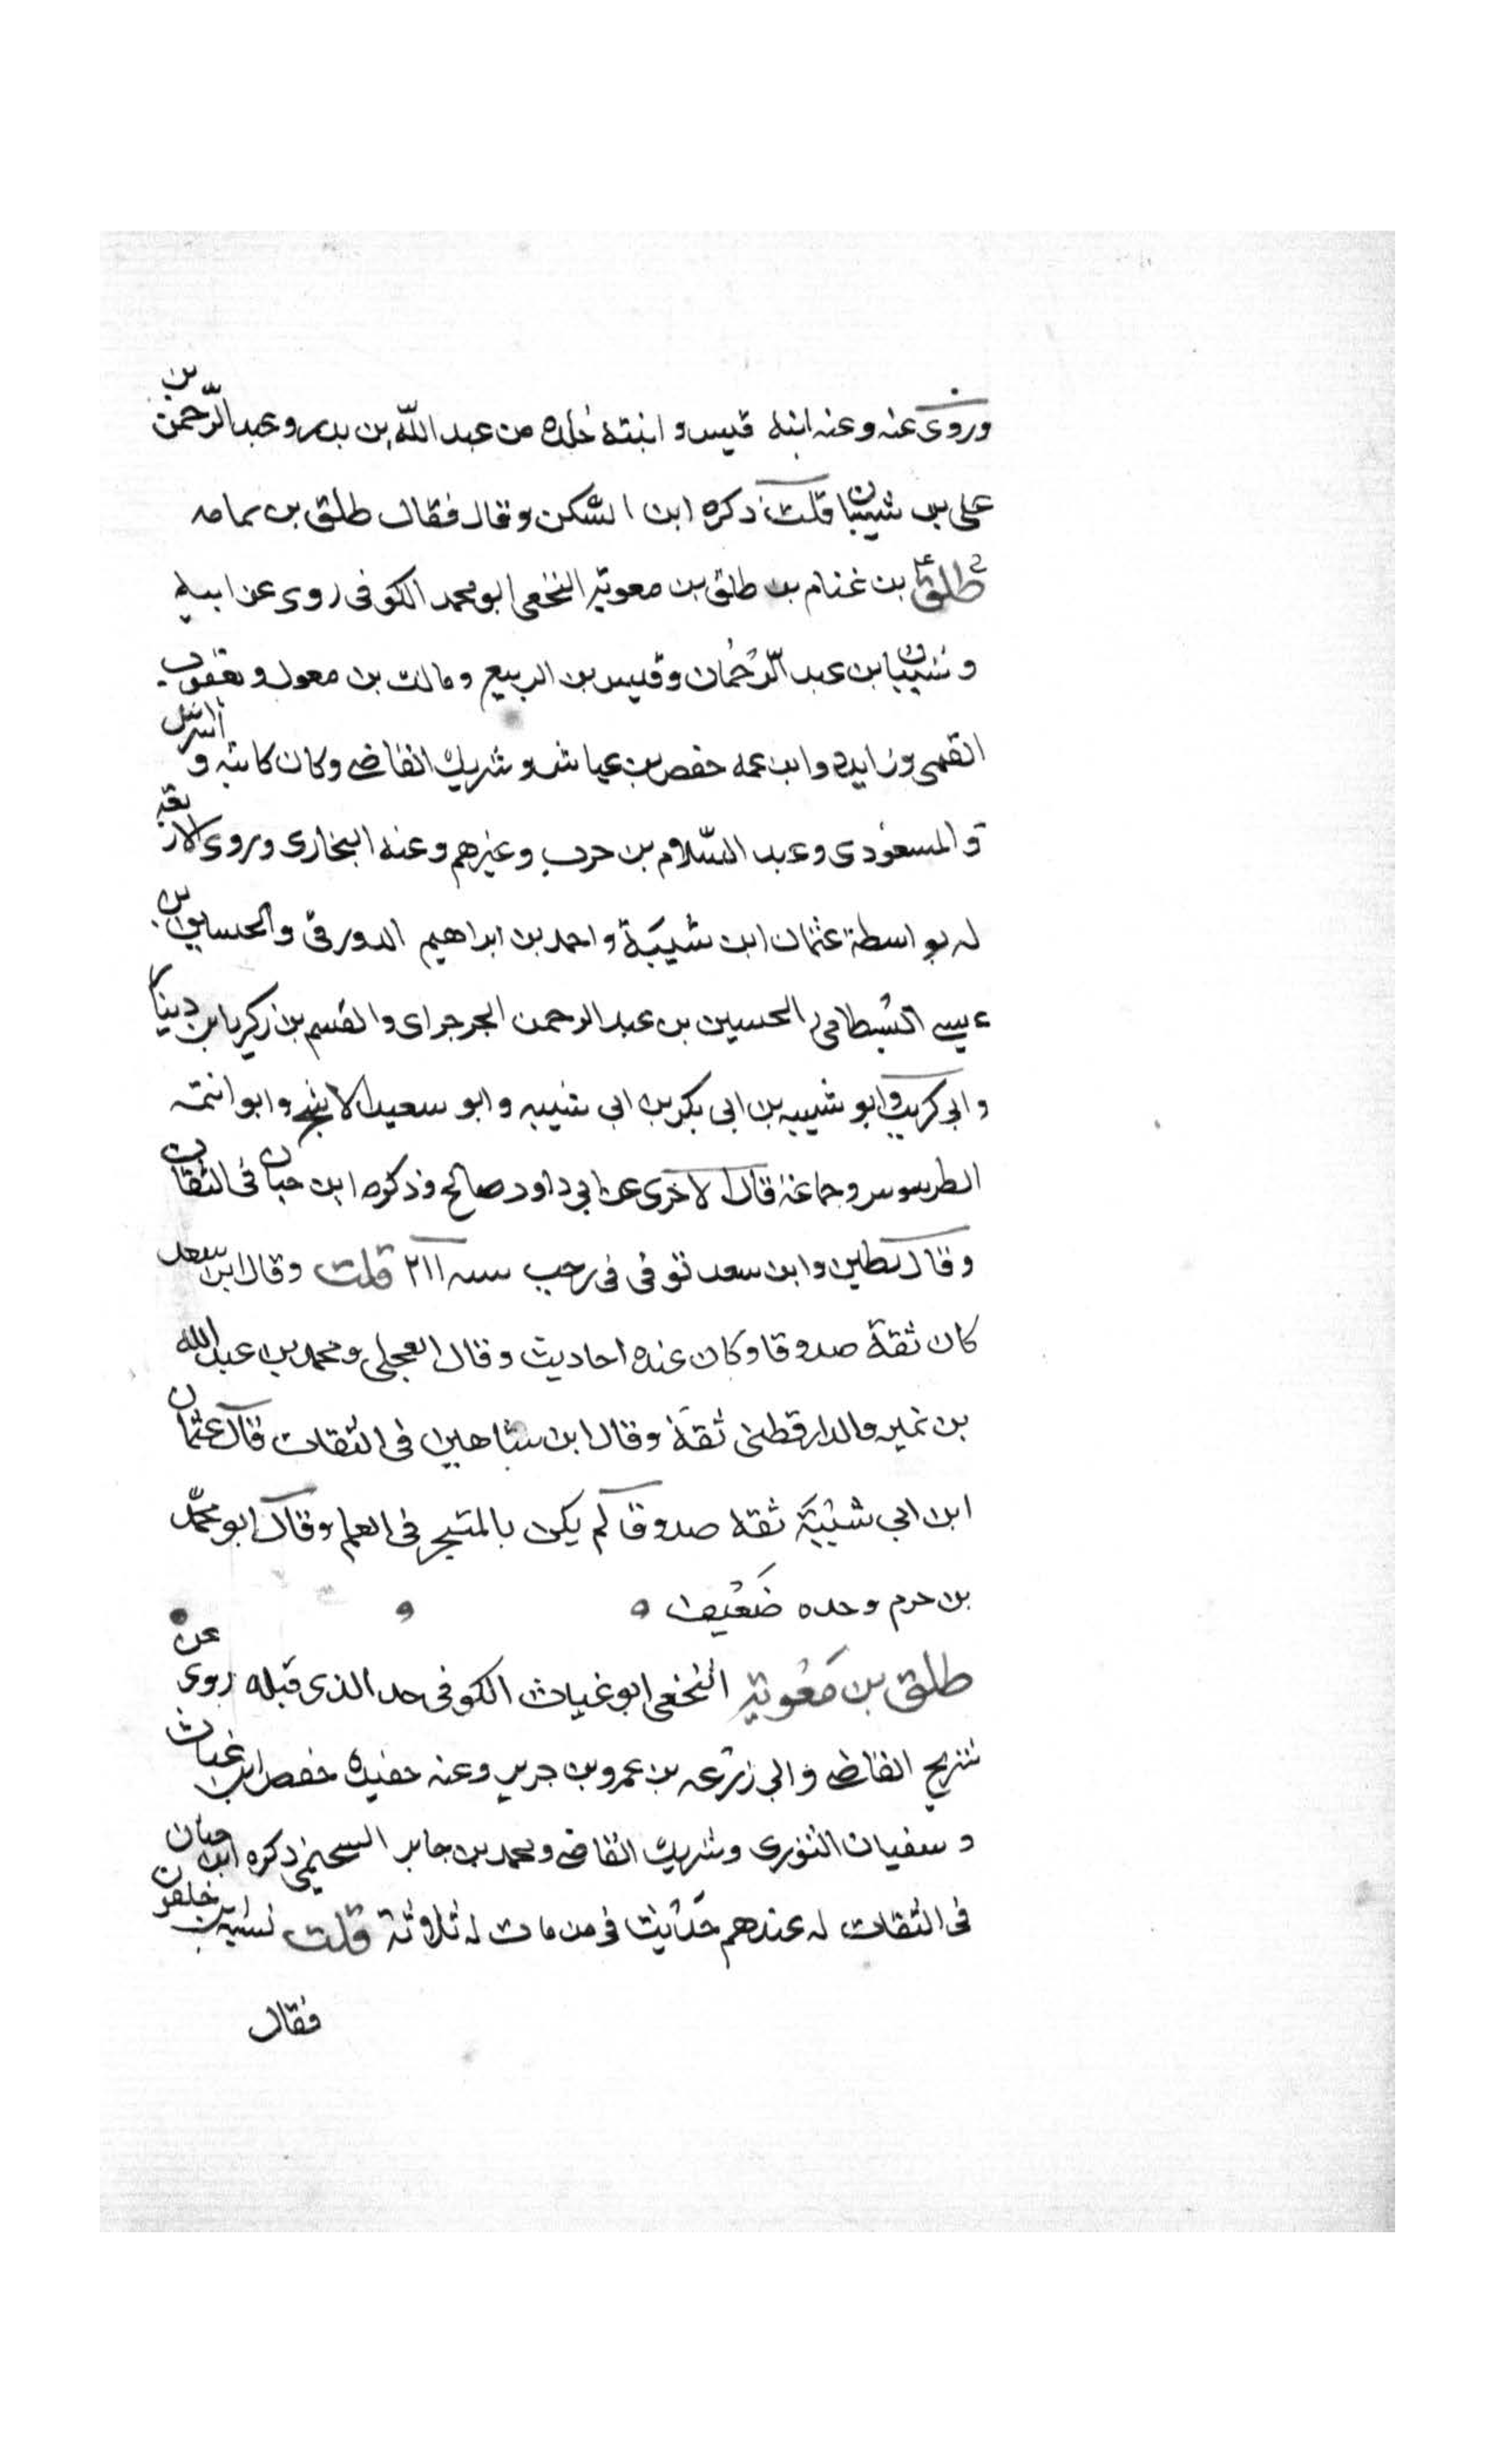 وروى عنه وعنه ابنه قيس وابنته خلده من عبد الله بن بدر وعبد الرّحمن بن
على بن شيبان قلت ذكره ابن السّكن وقال فقال طلق بن ثمامه
طلق بن غنام بن طلق بن معوية النخعى ابو محمد الكوفى روى عن ابيه
وشيبان بن عبد الرّحمان وقيس بن الربيع ومالك بن معول ويعقوب
القمى وزايده وابن عمه حفص بن عياش وشريك القاضى وكان كاتبه و
والمسعودى وعبد السّلام بن حرب وغيرهم وعنه البخارى وروى الاربعة
له بواسطة عثمان ابن شيبة واحمد بن ابراهيم الدورقى والحسين بن
عيسى البسطامى والحسين بن عبد الرحمن الجرجراى والقسم بن زكريا ابن دينار
وابى كريب وابو شيبه بن ابى بكر بن ابى شيبه وابو سعيد الاشج وابو اميه
الطرسوسى وجماعة قال الاخرى عن ابى داود صالح وذكره ابن حبان فى الثقات
وقال مطين وابن سعد توفى فى رجب سنه ٢١١ قلت وقال ابن سعد
كان ثقة صدوقا وكان عنده احاديث وقال العجلى ومحمد بن عبد الله
بن نمير والدارقطنى ثقة وقال ابن شاهين فى الثقات قال عثمان
ابن ابى شيبة ثقة صدوقا لم يكن بالمتبحر فى العلم وقال ابو محمّد
بن حزم وحده ضعيف
طلق بن معوية النخعى ابو غياث الكوفى جد الذى قبله روى عن
شريح القاضى وابى زرعه بن عمرو بن جرير وعنه حفيده حفص ابن غياث
وسفيان الثورى وشريك القاضى ومحمد بن جابر السحيمى ذكره ابن حبان
فى الثقات له عندهم حديث فى من مات له ثلاثة قلت نسبه ابن خلفون
فقال